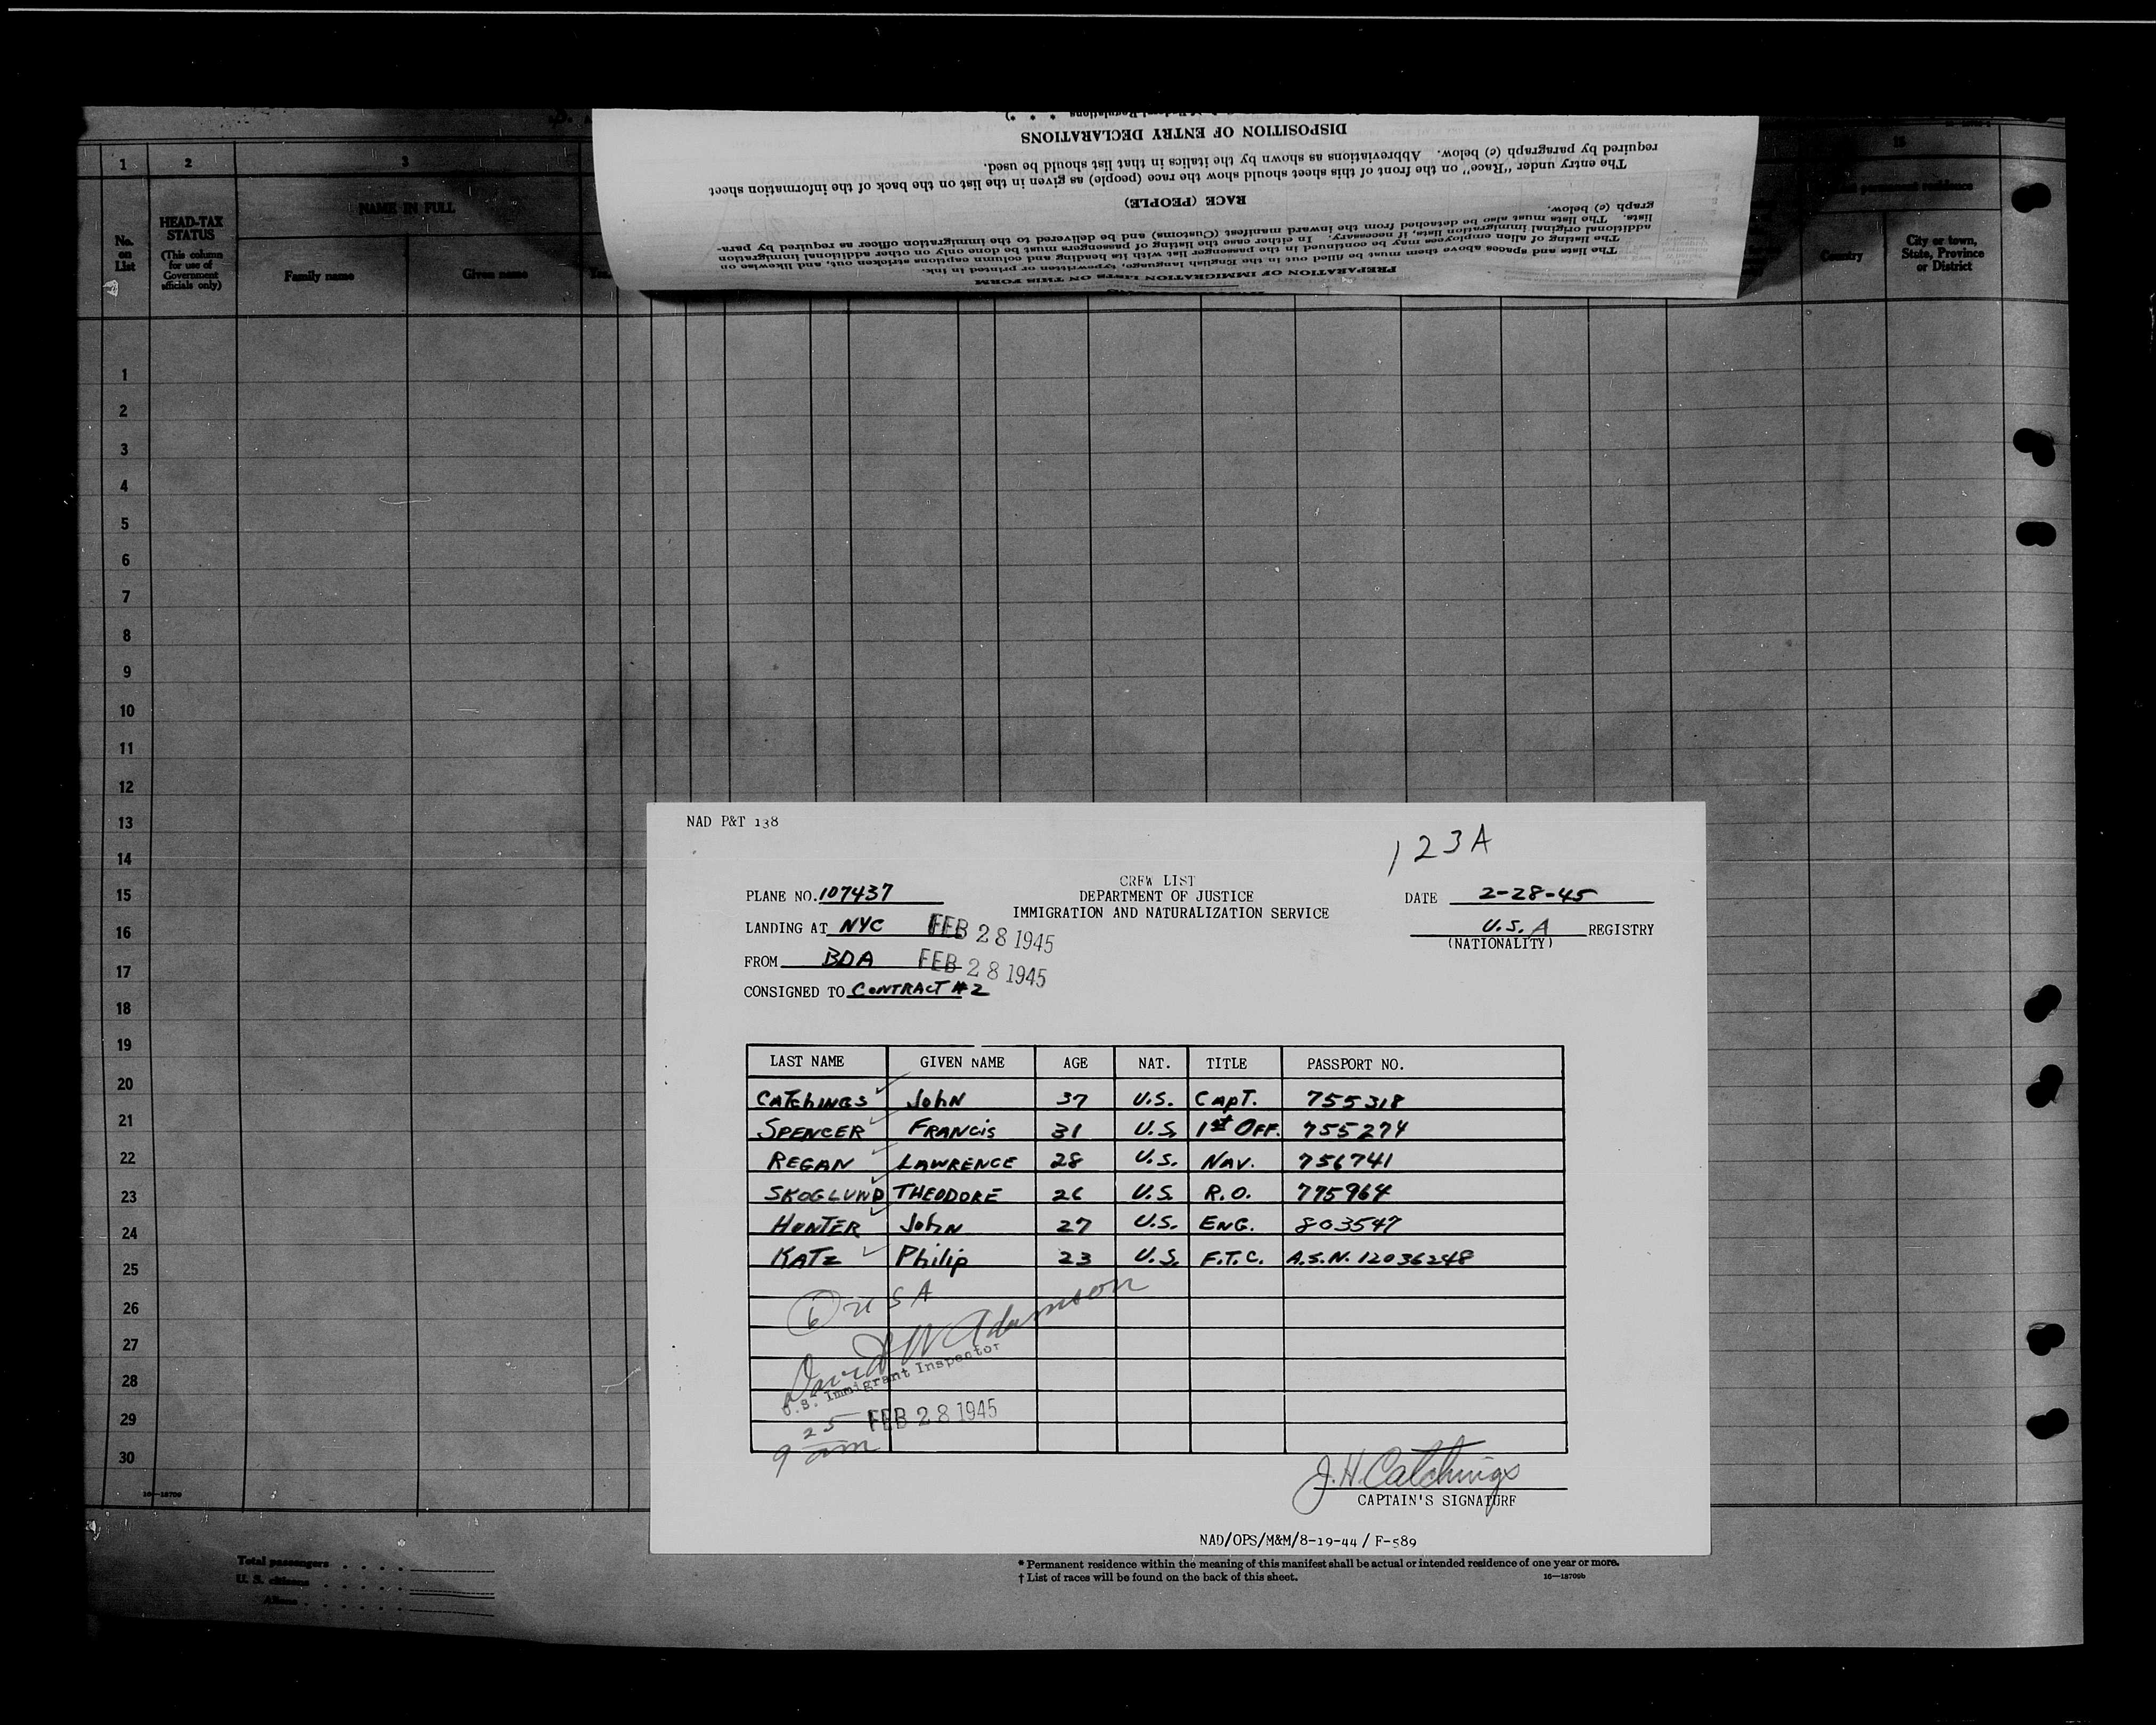 1
2
3
15
No. on List
HEAD-TAX STATUS
(This column for use of Government officials only)
NAME IN FULL
Family name
Given name
permanent residence
Country
City or town, State, Province or District
DISPOSITION OF ENTRY DECLARATIONS
required by paragraph (c) below. Abbreviations as shown by the italics in that list should be used.
The entry under "Race" on the front of this sheet should show the race (people) as given in the list on the back of the information sheet
RACE (PEOPLE)
graph (c) below.
lists. The lists must also be detached from the inward manifest (Customs) and be delivered to the immigration officer as required by para-
additional original immigration lists, if necessary. In either case the listing of passengers must be done only on other additional immigration
The listing of alien employees may be continued in the passenger list with its heading and column captions stricken out, and likewise on
The lists and spaces above them must be filled out in the English language, typewritten or printed in ink.
PREPARATION OF IMMIGRATION LISTS ON THIS FORM
1
2
3
4
5
6
7
8
9
10
11
12
13
14
15
16
17
18
19
20
21
22
23
24
25
26
27
28
29
30
16—18709
NAD P&T 138
123A
CREW LIST
PLANE NO. 107437 DEPARTMENT OF JUSTICE DATE 2-28-45
IMMIGRATION AND NATURALIZATION SERVICE
LANDING AT NYC FEB 28 1945 U.S.A REGISTRY
(NATIONALITY)
FROM BDA FEB 28 1945
CONSIGNED TO CONTRACT #2
LAST NAME GIVEN NAME AGE NAT. TITLE PASSPORT NO.
CATCHINGS John 37 U.S. CAPT. 755318
SPENCER FRANCIS 31 U.S. 1st OFF. 755274
REGAN LAWRENCE 28 U.S. NAV. 756741
SKOGLUND THEODORE 26 U.S. R.O. 775964
HUNTER John 27 U.S. ENG. 803547
KATZ Philip 23 U.S. F.T.C. A.S.N. 12036248
6 USA
David W Adamson
U.S. Immigrant Inspector
FEB 28 1945
9 25 am
J.H. Catchings
CAPTAIN'S SIGNATURE
NAD/OPS/M&M/8-19-44 / F-589
Total passengers . . . .
U. S. citizens . . . . .
Aliens . . . . . .
* Permanent residence within the meaning of this manifest shall be actual or intended residence of one year or more.
† List of races will be found on the back of this sheet.
16—18709b